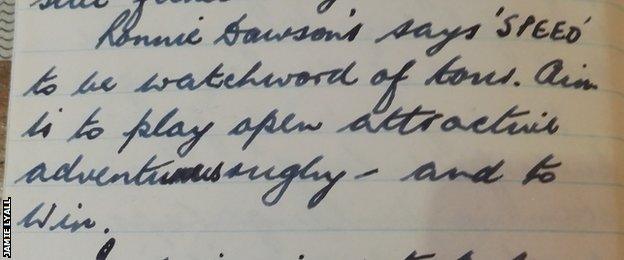 Ronnie Dawson's says 'SPEED'
to be watchword of tour. Aim
is to play open attractive
adventurous rugby - and to
win.
JAMIE LYALL